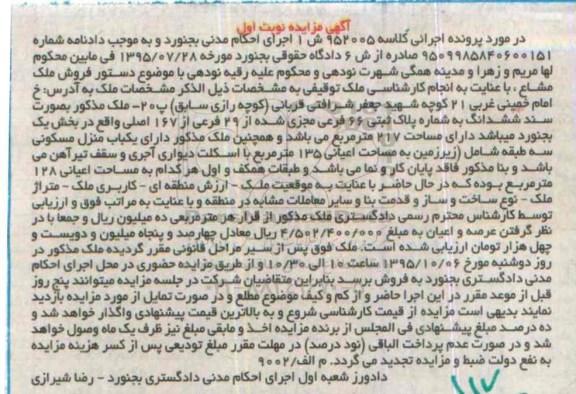 آگهی مزایده نوبت اول
در مورد پرونده اجرائی کلاسه ۹۵۲۰۰۵ ش ۱ اجرای احکام مدنی بجنورد و به موجب دادنامه شماره
۹۵۰۹۹۸۵۸۴۰۶۰۰۱۵۱ صادره از ش ۶ دادگاه حقوقی بجنورد مورخه ۱۳۹۵/۰۷/۲۸ فی مابین محکوم
لها مریم و زهرا و مدینه همگی شهرت نودهی و محکوم علیه رقیه نودهی با موضوع دستور فروش ملک
مشاع ، با عنایت به انجام کارشناسی ملک توقیفی به مشخصات ذیل الذکر مشخصات ملک به آدرس: خ
امام خمینی غربی ۲۱ کوچه شهید جعفر شرافتی قربانی (کوچه رازی سابق) پ۲۰- ملک مذکور بصورت
سند ششدانگ به شماره پلاک ثبتی ۶۶ فرعی مجزی شده از ۲۹ فرعی از ۱۶۷ اصلی واقع در بخش یک
بجنورد میباشد دارای مساحت ۲۱۷ مترمربع می باشد و همچنین ملک مذکور دارای یکباب منزل مسکونی
سه طبقه شامل (زیرزمین به مساحت اعیانی ۱۳۵ مترمربع با اسکلت دیواری آجری و سقف تیرآهن می
باشد و بنا مذکور فاقد پایان کار و نما می باشد و طبقات همکف و اول هر کدام به مساحت اعیانی ۱۲۸
مترمربع بوده که در حال حاضر با عنایت به موقعیت ملک - ارزش منطقه ای - کاربری ملک - متراژ
ملک - نوع ساخت و ساز و قدمت بنا و سایر معاملات مشابه در منطقه و با عنایت به مراتب فوق و ارزیابی
توسط کارشناس محترم رسمی دادگستری ملک مذکور از قرار هر مترمربعی ده میلیون ریال و جمعا با در
نظر گرفتن عرصه و اعیان به مبلغ ۴/۵۰۲/۴۰۰/۰۰۰ ریال معادل چهارصد و پنجاه میلیون و دویست و
چهل هزار تومان ارزیابی شده است. ملک فوق پس از سیر مراحل قانونی مقرر گردیده ملک مذکور در
روز دوشنبه مورخ ۱۳۹۵/۱۰/۰۶ ساعت ۱۰ الی ۱۰/۳۰ و از طریق مزایده حضوری در محل اجرای احکام
مدنی دادگستری بجنورد به فروش برسد بنابراین متقاضیان شرکت در جلسه مزایده میتوانند پنج روز
قبل از موعد مقرر در این اجرا حاضر و از کم و کیف موضوع مطلع و در صورت تمایل از مورد مزایده بازدید
نمایند بدیهی است مزایده از قیمت کارشناسی شروع و به بالاترین قیمت پیشنهادی واگذار خواهد شد و
ده درصد مبلغ پیشنهادی فی المجلس از برنده مزایده اخذ و مابقی مبلغ نیز ظرف یک ماه وصول خواهد
شد و در صورت عدم پرداخت الباقی (نود درصد) در مهلت مقرر مبلغ تودیعی پس از کسر هزینه مزایده
به نفع دولت ضبط و مزایده تجدید می گردد. م الف/۹۰۰۲
دادورز شعبه اول اجرای احکام مدنی دادگستری بجنورد - رضا شیرازی
۱۱۷